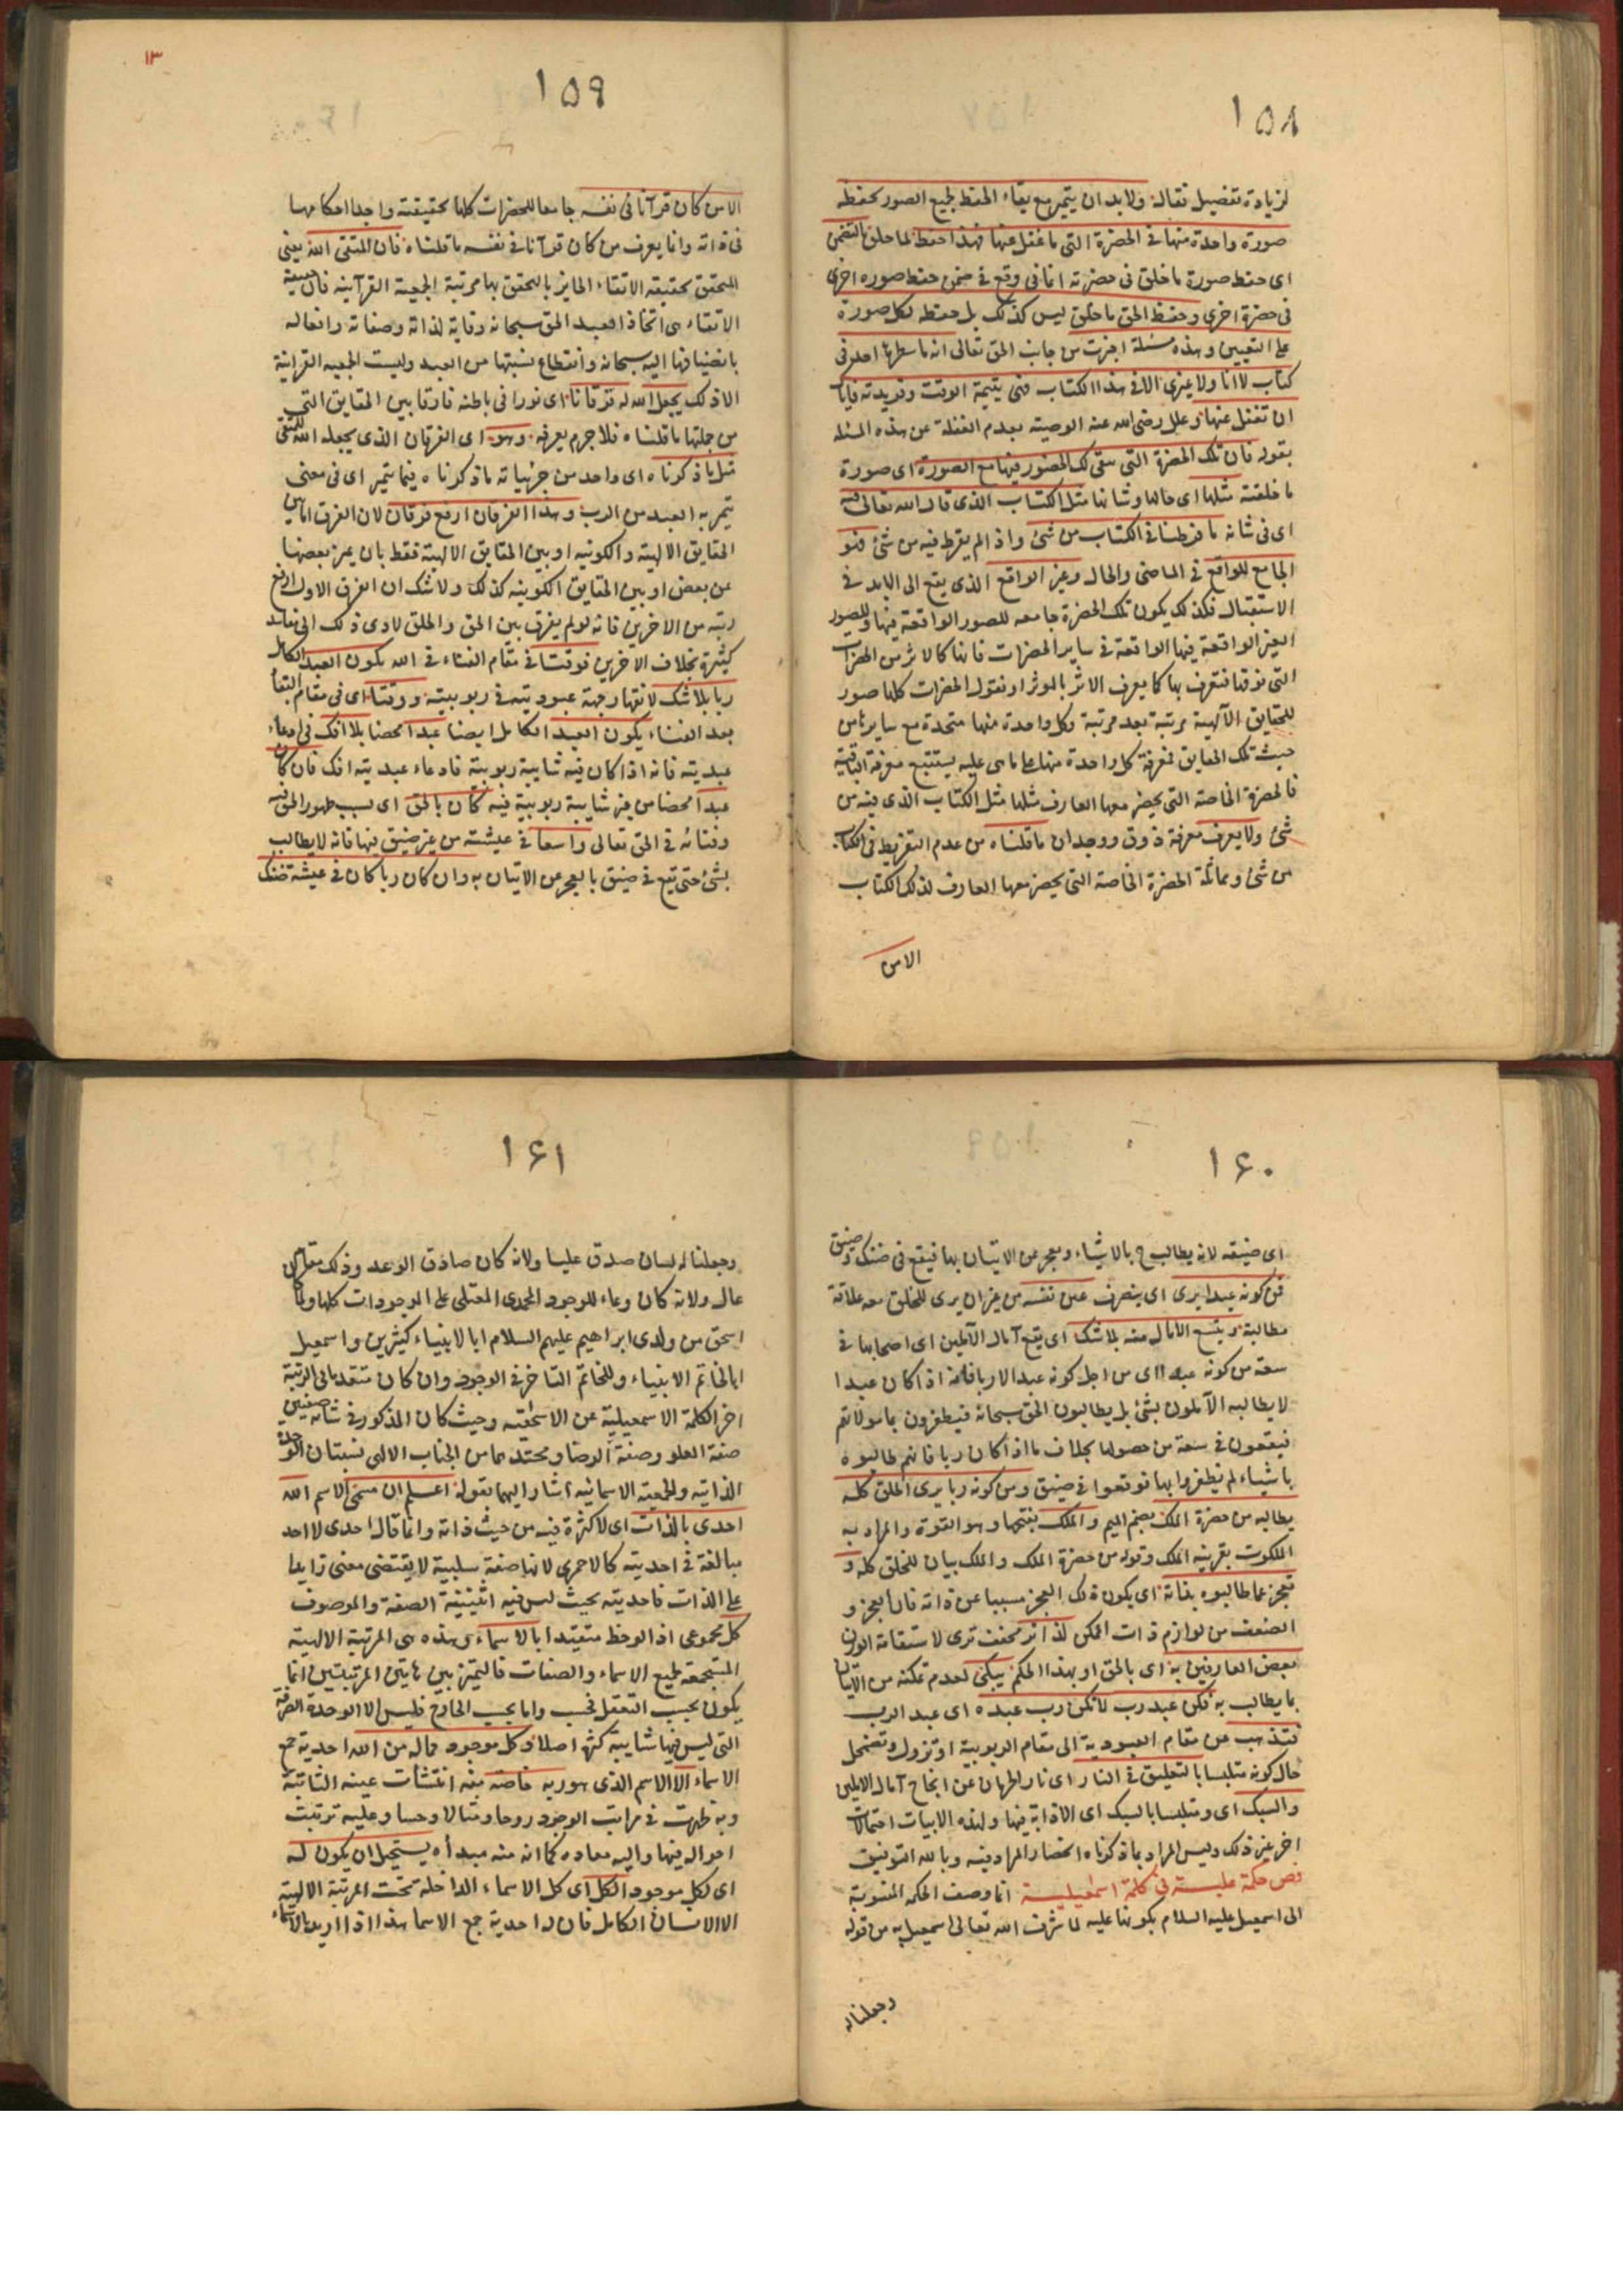 ١٥٨
لزيادة تفصيل فقال ولا بد ان يتميز مع بقاء الحفظ لجميع الصور بحفظه
صورة واحدة منها في الحضرة التى ما غفل عنها فهذا حفظ لما خلق بالتضمن
اى حفظ صورة ما خلق فى حضرته انما فى وقع فى ضمن حفظ صوره اخرى
فى حضرة اخرى وحفظ الحق ما خلق ليس كذلك بل حفظه لكل صورة
على التعيين وهذه مسئلة اخبرت من جانب الحق تعالى انه ما سطرها احد فى
كتاب لا انا ولا غيرى الا فى هذا الكتاب فهى يتيمة الوقت وفريدته فاياك
ان تغفل عنها وعلل رضى الله عنه الوصيته بعدم الغفلة عن هذه المسئله
بقوله فان تلك الحضرة التى يبقى لك الحضور فيها مع الصورة اى صورة
ما خلقته مثلها اى حالها وشانها مثل الكتاب الذى قال الله تعالى فيه
اى فى شانه ما فرطنا فى الكتاب من شئ واذ الم يفرط فيه من شئ فهو
الجامع للواقع فى الماضى والحال وغير الواقع الذى يقع الى الابد فى
الاستقبال فكذلك يكون تلك الحضرة جامعه للصور الواقعة فيها وللصور
الغير الواقعة فيها الواقعة فى ساير الحضرات فانها كالاثر من الحضرات
التى فوقها فتعرف بها كما يعرف الاثر بالموثر او نقول الحضرات كلها صور
للحقايق الآلهية مرتبة بعد مرتبة وكل واحدة منها متحدة مع سايرها من
حيث تلك الحقايق فمعرفة كل واحدة منها على ما هى عليه يستتبع معرفة الباقية
فالحضرة الخاصة التى يحضر معها العارف مثلها مثل الكتاب الذى فيه من
شئ ولا يعرف معرفة ذوق ووجدان ما قلناه من عدم التفريط فى الكتاب
من شئ ومماثلة الحضرة الخاصة التى يحضر معها العارف لذلك الكتاب
الا من
١٣
١٥٩
الا من كان قرآنا فى نفسه جامعا للحضرات كلها بحقيقته واجدا احكامها
فى ذاته وانما يعرف من كان قرآنا فى نفسه ما قلناه فان المتقى الله يعنى
المتحقق بحقيقه الاتقاء الفايز بالتحقق بها مرتبة الجمعية القرآنيه فان حقيقة
الاتقاء هى اتخاذ العبد الحق سبحانه وقاية لذاته وصفاته وافعاله
بانضيافها اليه سبحانه وانقطاع نسبتها من العبد وليست الجمعيه القرانية
الا ذلك يجعل الله له فرقانا اى نورا فى باطنه فارقا بين الحقايق التى
من جملتها ما قلناه فلا جرم يعرفه وهو اى الفرقان الذى يجعله الله للمتقى
مثل ما ذكرناه اى واحد من جزئياته ما ذكرناه فيما يتميز اى فى معنى
يتميز به العبد من الرب وهذا الفرقان ارفع فرقان لان الفرق اما بين
الحقايق الالهية والكونيه او بين الحقايق الالهية فقط بان يميز بعضها
عن بعض او بين الحقايق الكونيه كذلك ولا شك ان الفرق الاول ارفع
رتبه من الاخرين فانه لو لم يفرق بين الحق والخلق لادى ذلك الى مفاسد
كثيرة بخلاف الاخرين فوقتا فى مقام الفناء فى الله يكون العبد الكامل
ربا بلا شك لانقهار جهة عبوديته فى ربوبيته ووقتا اى فى مقام البقا
بعد الفناء يكون العبد الكامل ايضا عبدا محضا بلا افك فى ادعاء
عبديته فانه اذا كان فيه شايبة ربوبية فادعاء عبديته افك فان كان
عبدا محضا من غير شايبة ربوبية فيه كان بالحق اى بسبب ظهور الحق فيه
وفنائه فى الحق تعالى واسعا فى عيشته من غير ضيق فيها فانه لا يطالب
بشئ حتى يقع فى ضيق بالعجز عن الاتيان به وان كان ربا كان فى عيشة ضنك
١۶٠
اى ضيقه لانه يطالب ح بالاشياء ويعجز عن الاتيان بها فيقع فى ضنك وضيق
فمن كونه عبدا يرى اى ينصرف عين نفسه من غير ان يرى للخلق معه علاقة
مطالبة ويتسع الامال منه بلا شك اى يقع آمال الآملين اى اصحابها فى
سعة من كونه عبدا اى من اجل كونه عبدا لا ربا فانه اذا كان عبدا
لا يطالبه الآملون بشئ بل يطالبون الحق سبحانه فيظفرون بمامولاتهم
فيقعون فى سعة من حصولها بخلاف ما اذا كان ربا فانهم طالبوه
باشياء لم يظفروا بها فوقعوا فى ضيق ومن كونه ربا يرى الخلق كله
يطالبه من حضرة الملك بضم الميم والملك بفتحها وهو القوة والمراد به
الملكوت بقرينه الملك وقوله من حضرة الملك والملك بيان للخلق كله و
يعجز عما طالبوه بذاته اى يكون ذلك العجز مسببا عن ذاته فان العجز و
الضعف من لوازم ذات الممكن لذا تر محفف ترى لاستقامة الوزن
بعض العارفين به اى بالحق او بهذا الحكم يبكى لعدم تمكنه من الاتيان
بما يطالب به فكن عبد رب لا تكن رب عبده اى عبد الرب
فتذهب عن مقام العبودية الى مقام الربوبية او تزول وتضمحل
حال كونه متلبسا بالتعليق فى النار اى نار الحرمان عن انجاح آمال الاملين
والسبك اى ومتلبسا بالسبك اى الاذابة فيها ولهذه الابيات احتمالات
اخر غير ذلك وليس المراد بما ذكرناه انحصار المراد فيه وبالله التوفيق
فص حكمة علية فى كلمة اسمعيلية انما وصف الحكمه المنسوبة
الى اسمعيل عليه السلام بكونها عليه لما شرف الله تعالى اسمعيل به من قوله
وجعلنا له
١۶١
وجعلنا له لسان صدق عليا ولانه كان صادق الوعد وذلك مقام
عال ولانه كان وعاء للوجود المحمدى المعتلى على الموجودات كلها ولما كان
اسحق من ولدى ابراهيم عليهم السلام ابا لانبياء كثيرين واسمعيل
ابا لخاتم الانبياء وللخاتم التاخر فى الوجود وان كان متقدما فى الرتبة
اخر الكلمة الاسمعيلية عن الاسحقيه وحيث كان المذكور فى شانه صفتين
صفة العلو وصفة الرضا ومحتدهما من الجناب الالهى نسبتان الوحدة
الذاتيه والجمعية الاسمائيه اشار اليهما بقوله اعلم ان مسمى الاسم الله
احدى بالذات اى لا كثرة فيه من حيث ذاته وانما قال احدى لا احد
مبالغة فى احديته كالاحمرى لانها صفة سلبية لا يقتضى معنى زايدا
على الذات فاحديته بحيث ليس فيه اثنينية الصفة والموصوف
كل مجموعى اذا لوحظ مقيدا بالاسماء وهذه هى المرتبة الالهية
المستجمعة لجميع الاسماء والصفات فالتميز بين هاتين المرتبتين انما
يكون بحسب التعقل فحسب واما بحسب الخارج فليس الا الوحدة الصرفة
التى ليس فيها شايبة كثرة اصلا وكل موجود فماله من الله احدية جمع
الاسماء الا الاسم الذى هو ربه خاصة منه انتشات عينه الثابتة
وبه ظهرت فى مراتب الوجود روحا ومثالا وحسا وعليه ترتبت
احواله فيها واليه معاده كما انه منه مبدأه يستحيل ان يكون له
اى لكل موجود الكل اى كل الاسماء الداخلة تحت المرتبة الالهية
الا الانسان الكامل فان له احدية جمع الاسما هذا اذا اريد بالاسماء